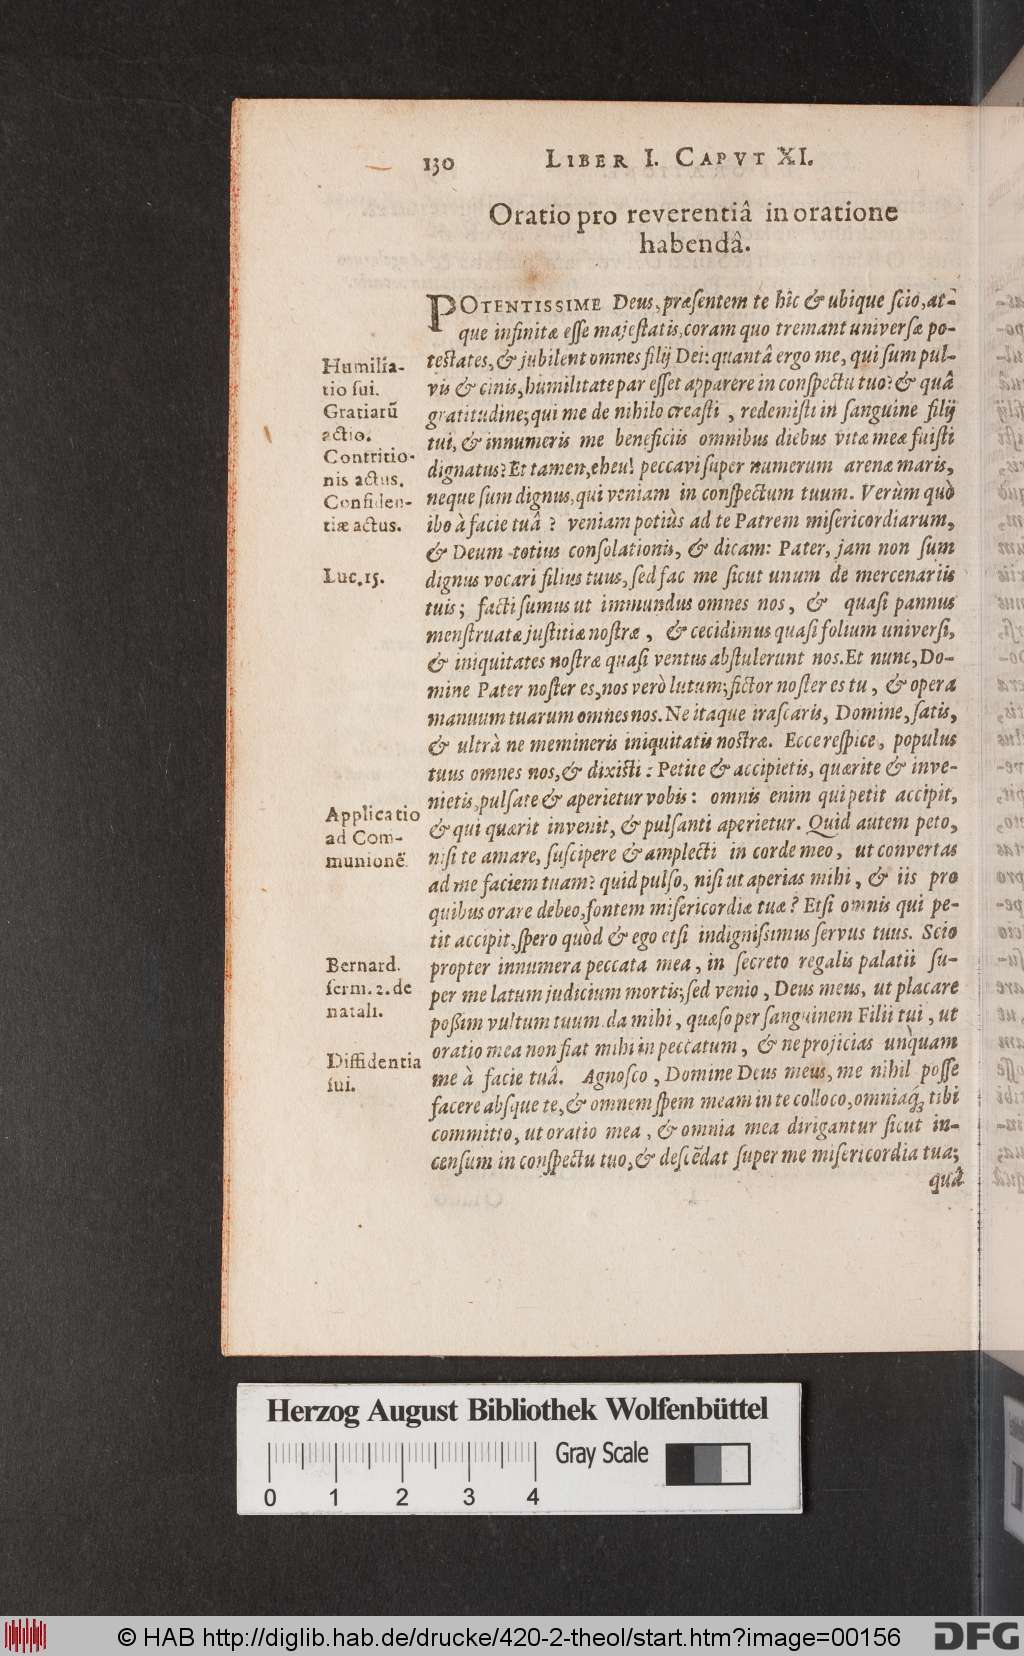 130 LIBER I. CAPVT XI.
Oratio pro reverentiâ in oratione
habendâ.
POTENTISSIME Deus, præsentem te hîc & ubique scio, at-
que infinitæ esse majestatis, coram quo tremant universæ po-
testates, & jubilent omnes filij Dei: quantâ ergo me, qui sum pul-
vis & cinis, humilitate par esset apparere in conspectu tuo? & quâ
gratitudine; qui me de nihilo creasti, redemisti in sanguine filij
tui, & innumeris me beneficiis omnibus diebus vitæ meæ fuisti
dignatus? Et tamen, eheu! peccavi super numerum arenæ maris,
neque sum dignus, qui veniam in conspectum tuum. Verùm quò
ibo à facie tuâ? veniam potiùs ad te Patrem misericordiarum,
& Deum totius consolationis, & dicam: Pater, jam non sum
dignus vocari filius tuus, sed fac me sicut unum de mercenariis
tuis; facti sumus ut immundus omnes nos, & quasi pannus
menstruatæ justitiæ nostræ, & cecidimus quasi folium universi,
& iniquitates nostræ quasi ventus abstulerunt nos. Et nunc, Do-
mine Pater noster es, nos verò lutum; fictor noster es tu, & opera
manuum tuarum omnes nos. Ne itaque irascaris, Domine, satis,
& ultrà ne memineris iniquitatis nostræ. Ecce respice, populus
tuus omnes nos, & dixisti: Petite & accipietis, quærite & inve-
nietis, pulsate & aperietur vobis: omnis enim qui petit accipit,
& qui quærit invenit, & pulsanti aperietur. Quid autem peto,
nisi te amare, suscipere & amplecti in corde meo, ut convertas
ad me faciem tuam? quid pulso, nisi ut aperias mihi, & iis pro
quibus orare debeo, fontem misericordiæ tuæ? Etsi omnis qui pe-
tit accipit, spero quòd & ego etsi indignissimus servus tuus. Scio
propter innumera peccata mea, in secreto regalis palatii su-
per me latum judicium mortis; sed venio, Deus meus, ut placare
possim vultum tuum. da mihi, quæso per sanguinem Filii tui, ut
oratio mea non fiat mihi in peccatum, & ne projicias unquam
me à facie tuâ. Agnosco, Domine Deus meus, me nihil posse
facere absque te, & omnem spem meam in te colloco, omniaq́; tibi
committo, ut oratio mea, & omnia mea dirigantur sicut in-
censum in conspectu tuo, & descẽdat super me misericordia tua;
quâ
Humilia-
tio sui.
Gratiarũ
actio.
Contritio-
nis actus.
Confiden-
tiæ actus.
Luc. 15.
Applicatio
ad Com-
munionẽ.
Bernard.
serm. 2. de
natali.
Diffidentia
sui.
Herzog August Bibliothek Wolfenbüttel
Gray Scale
0 1 2 3 4
© HAB http://diglib.hab.de/drucke/420-2-theol/start.htm?image=00156
DFG